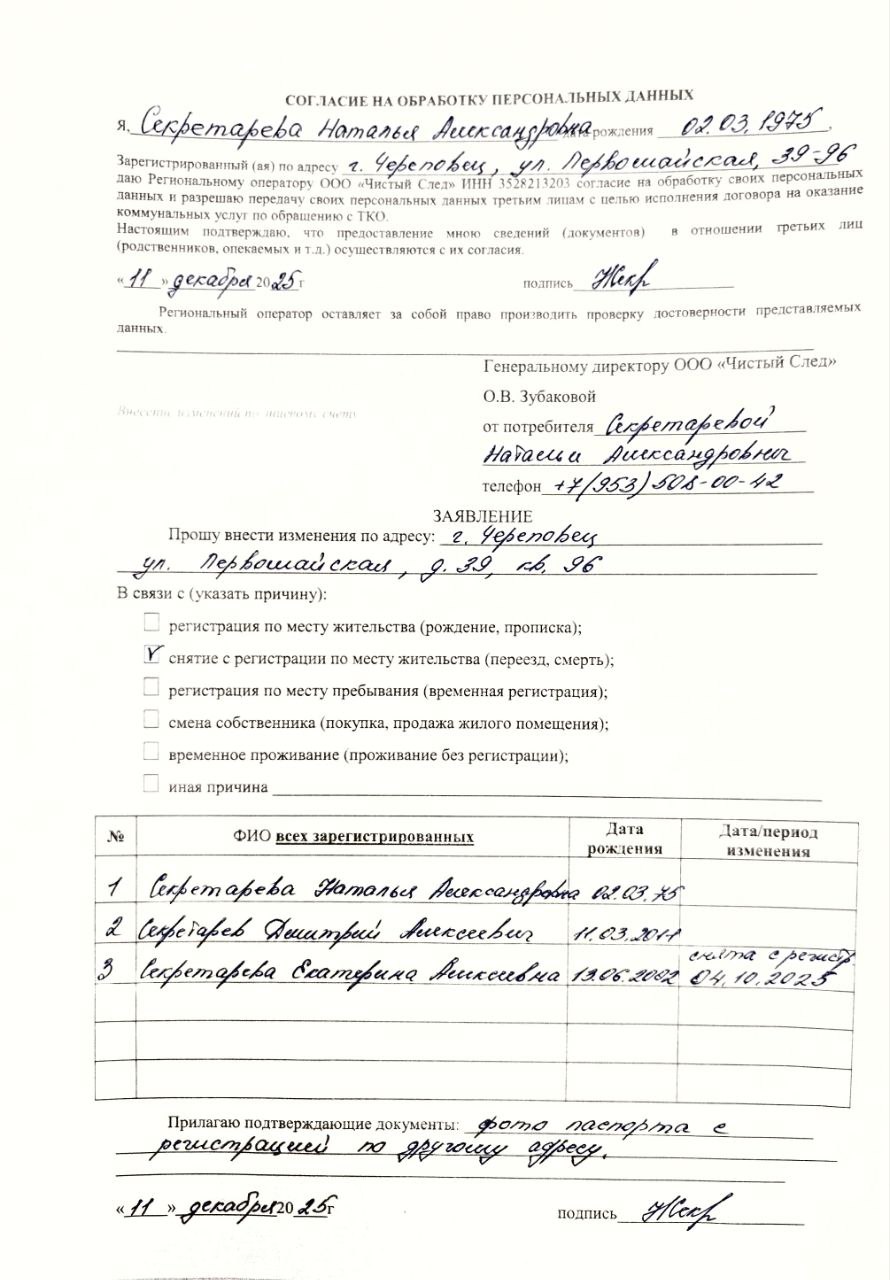 СОГЛАСИЕ НА ОБРАБОТКУ ПЕРСОНАЛЬНЫХ ДАННЫХ
Я, Секретарева Наталья Александровна дата рождения 02.03.1975,
Зарегистрированный (ая) по адресу г. Череповец, ул. Первомайская, 39-96
даю Региональному оператору ООО «Чистый След» ИНН 3528213203 согласие на обработку своих персональных
данных и разрешаю передачу своих персональных данных третьим лицам с целью исполнения договора на оказание
коммунальных услуг по обращению с ТКО.
Настоящим подтверждаю, что предоставление мною сведений (документов) в отношении третьих лиц
(родственников, опекаемых и т.д.) осуществляются с их согласия.
«11» декабря 2025г подпись
Региональный оператор оставляет за собой право производить проверку достоверности представляемых
данных.
Генеральному директору ООО «Чистый След»
О.В. Зубаковой
Внести изменения по лицевому счету
от потребителя Секретаревой
Натальи Александровны
телефон +7(953)508-00-42
ЗАЯВЛЕНИЕ
Прошу внести изменения по адресу: г. Череповец
ул. Первомайская, д. 39, кв. 96
В связи с (указать причину):
регистрация по месту жительства (рождение, прописка);
V снятие с регистрации по месту жительства (переезд, смерть);
регистрация по месту пребывания (временная регистрация);
смена собственника (покупка, продажа жилого помещения);
временное проживание (проживание без регистрации);
иная причина
№ ФИО всех зарегистрированных Дата рождения Дата/период изменения
1 Секретарева Наталья Александровна 02.03.75
2 Секретарев Дмитрий Алексеевич 11.03.2011
3 Секретарева Екатерина Алексеевна 13.06.2002 снята с регистр 04.10.2025
Прилагаю подтверждающие документы: фото паспорта с
регистрацией по другому адресу.
«11» декабря 2025г подпись